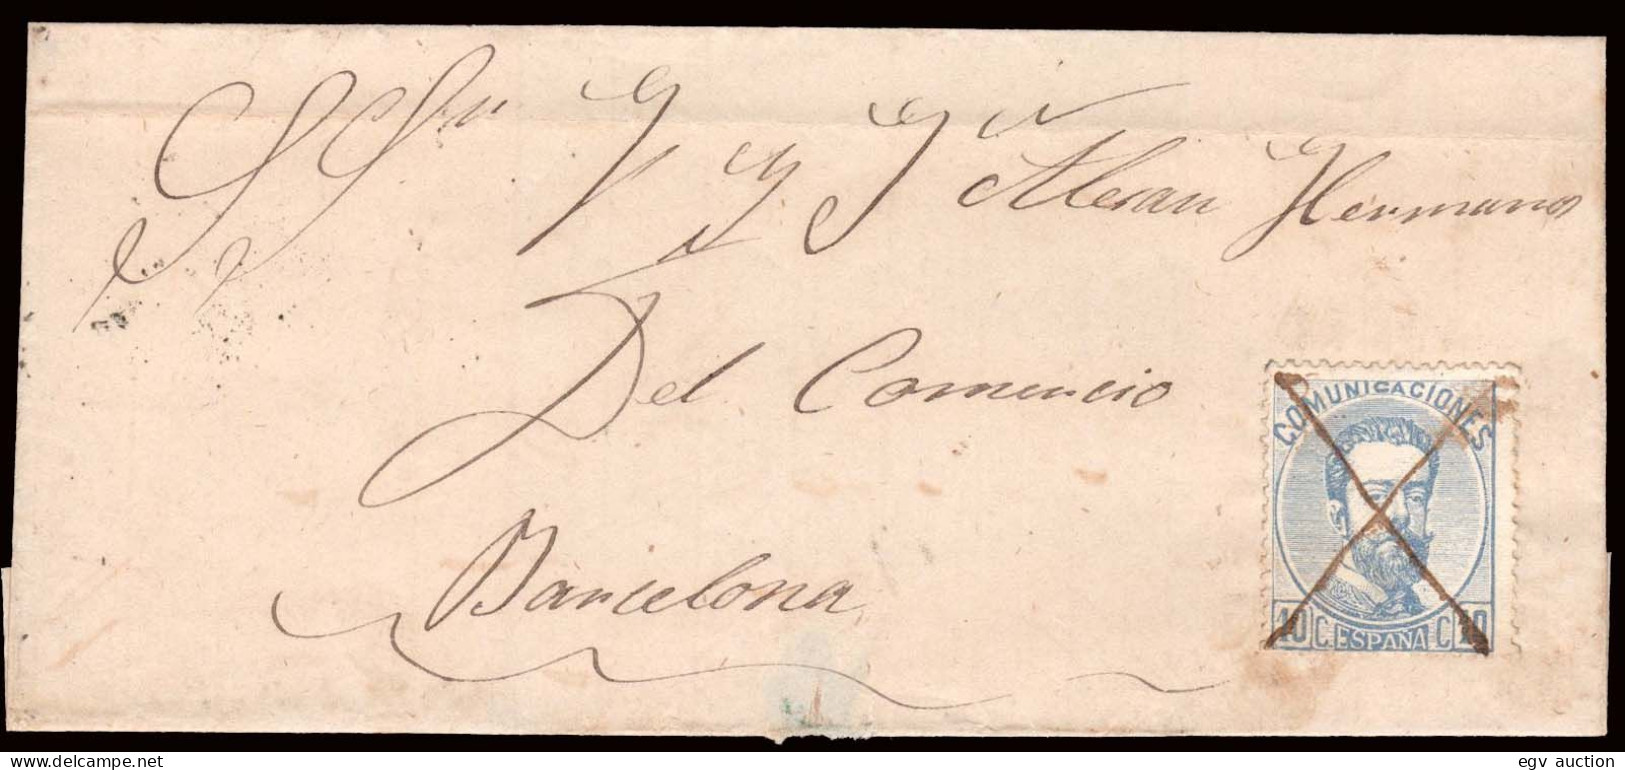 SSres Y. y J. Aleran Hermanos
Del Comercio
Barcelona
COMUNICACIONES
10 C. ESPAÑA C. 10
egv auction